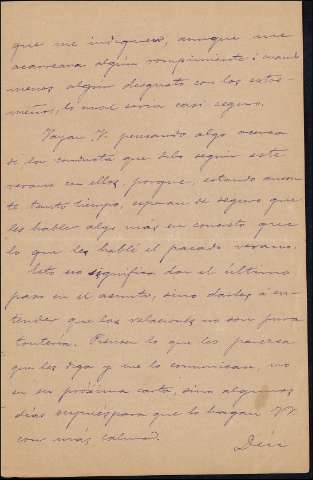 que me indiquen, aunque me
acarreara algún rompimiento; ó cuando
menos algún desgusto con los extre-
meños, lo cual sería casi seguro.
Vayan V. pensando algo acerca
de la conducta que debo seguir este
verano con ellos, porque, estando ausen-
te tanto tiempo, esperan de seguro que
les hable algo más en concreto que
lo que les hablé el pasado verano.
Esto no significa dar el último
paso en el asunto, sino darles á en-
tender que las relaciones no son pura
tontería. Piensen lo que les parezca
que les diga y me lo comunican, no
en su próxima carta, sino algunos
días después para que lo hagan VV
con más calma.